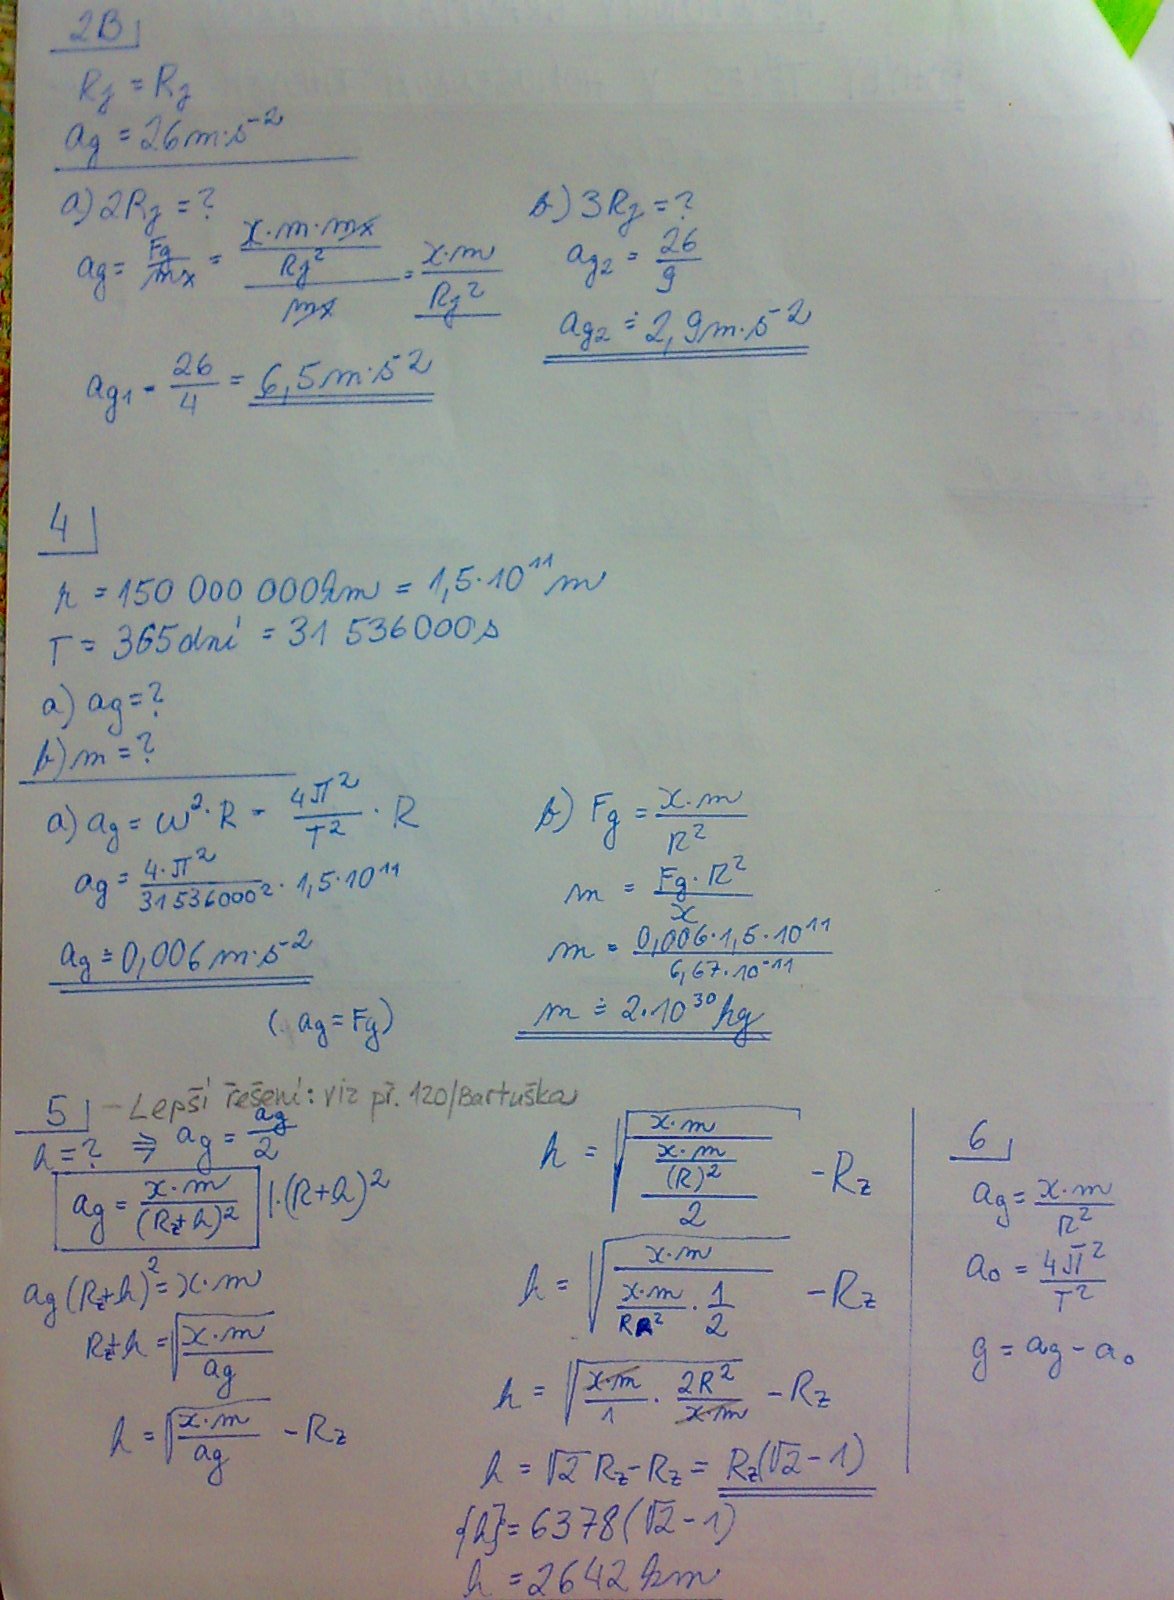 2B
Rj = Rj
ag = 26m·s⁻²
a) 2Rj = ?
ag = Fg/mx = (ϰ·m·mx/Rj²)/mx = ϰ·m/Rj²
ag₁ = 26/4 = 6,5m·s⁻²
b) 3Rj = ?
ag₂ = 26/9
ag₂ ≐ 2,9m·s⁻²
4
r = 150 000 000km = 1,5·10¹¹m
T = 365dní = 31 536000s
a) ag = ?
b) m = ?
a) ag = ω²·R = 4π²/T² · R
ag = 4·π²/31536000² · 1,5·10¹¹
ag ≐ 0,006m·s⁻²
(. ag = Fg)
b) Fg = ϰ·m/R²
m = Fg·R²/ϰ
m = 0,006·1,5·10¹¹/6,67·10⁻¹¹
m ≐ 2·10³⁰kg
5 – Lepší řešení: viz př. 120/Bartuška
h = ? ⇒ ag = ag/2
ag = ϰ·m/(Rz+h)² |·(R+h)²
ag(Rz+h)² = ϰ·m
Rz+h = √(ϰ·m/ag)
h = √(ϰ·m/ag) - Rz
h = √(ϰ·m/((ϰ·m/(R)²)/2)) - Rz
h = √(ϰ·m/(ϰ·m/R² · 1/2)) - Rz
h = √(ϰ·m/1 · 2R²/ϰ·m) - Rz
h = √2 Rz - Rz = Rz(√2 - 1)
{h} = 6378(√2 - 1)
h = 2642km
6
ag = ϰ·m/R²
ao = 4π²/T²
g = ag - ao